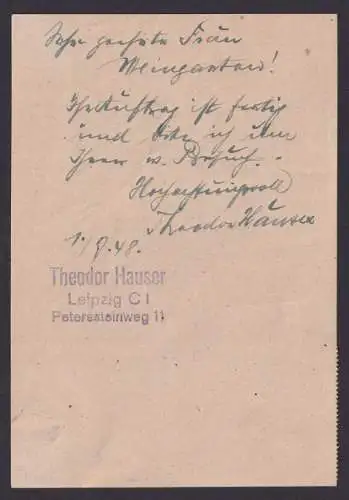 Sehr geehrte Frau
Weingarten!
Ihr Auftrag ist fertig
und bitte ich um
Ihren w. Besuch.
Hochachtungsvoll
Theodor Hauser
1./9.48.
Theodor Hauser
Leipzig C 1
Peterssteinweg 11